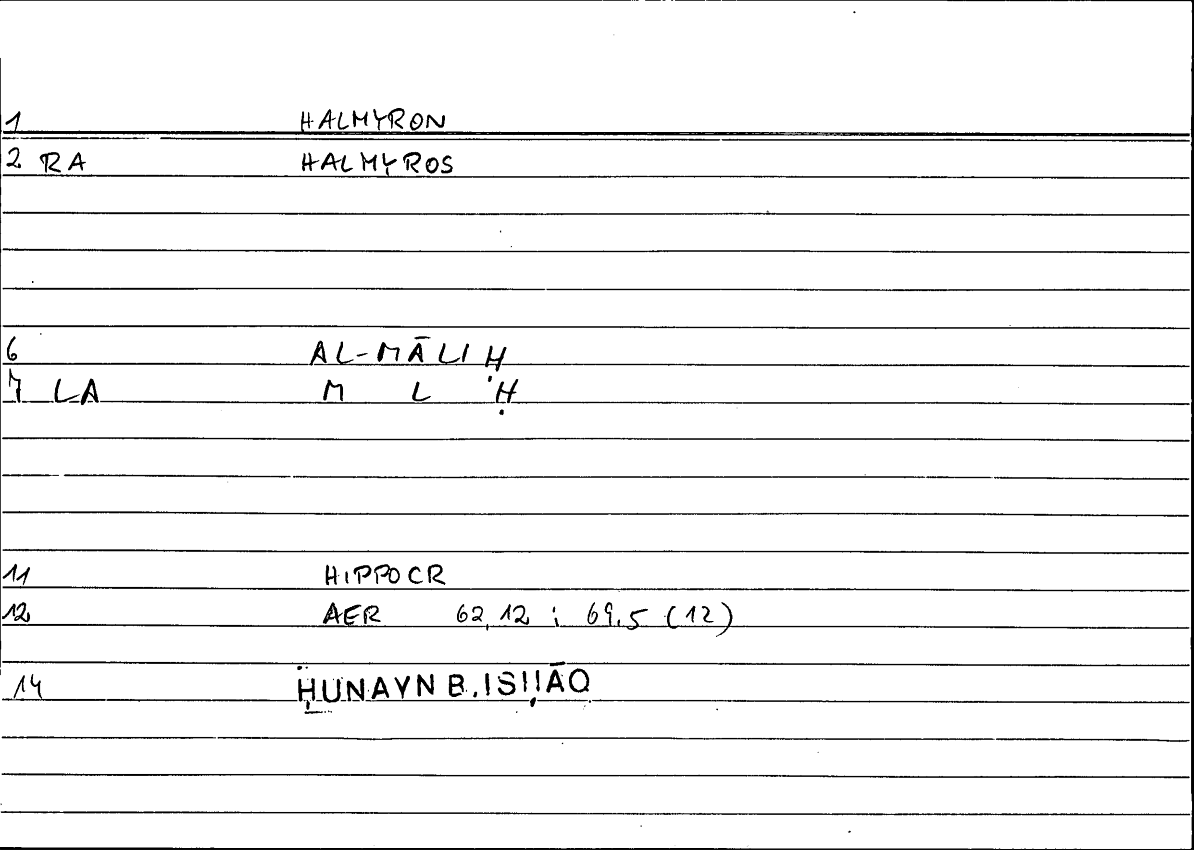 1 HALMYRON
2 RA HALMYROS
6 AL-MĀLIḤ
7 LA M L Ḥ
11 HIPPOCR
12 AER 62,12 ; 69,5 (12)
14 ḤUNAYN B. ISḤĀQ